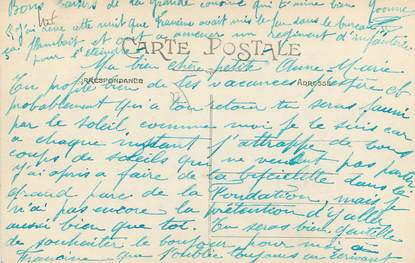 Bons baisers de ta grande cousine qui t'aime bien Yvonne
J'ai rêvé cette nuit que Francine avait mis le feu dans le bureau
ça flambait et on a amener un régiment d'infanterie
pour l'éteindre
CARTE POSTALE
CORRESPONDANCE
ADRESSE
Ma bien chère petite Anne-Marie
Tu profite bien de tes vacances j'espère et
probablement qu'a ton retour tu seras jauni
par le soleil, comme moi je le suis car
a chaque instant j'attrappe de bons
coups de soleils qui ne veulent pas partir
j'ai apris a faire de la biscielette dans le
grand parc de la Fondation, mais je
n'ai pas encore la prétention d'y aller
aussi bien que toi. Tu seras bien gentille
de souhaiter le bonjour pour moi a
Francine que j'oublie toujours en écrivant